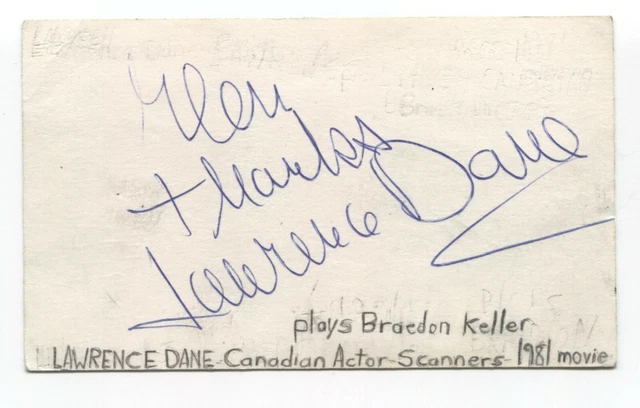 thanks
Lawrence Dane
plays Braedon Keller
LAWRENCE DANE-Canadian Actor-Scanners-1981 movie